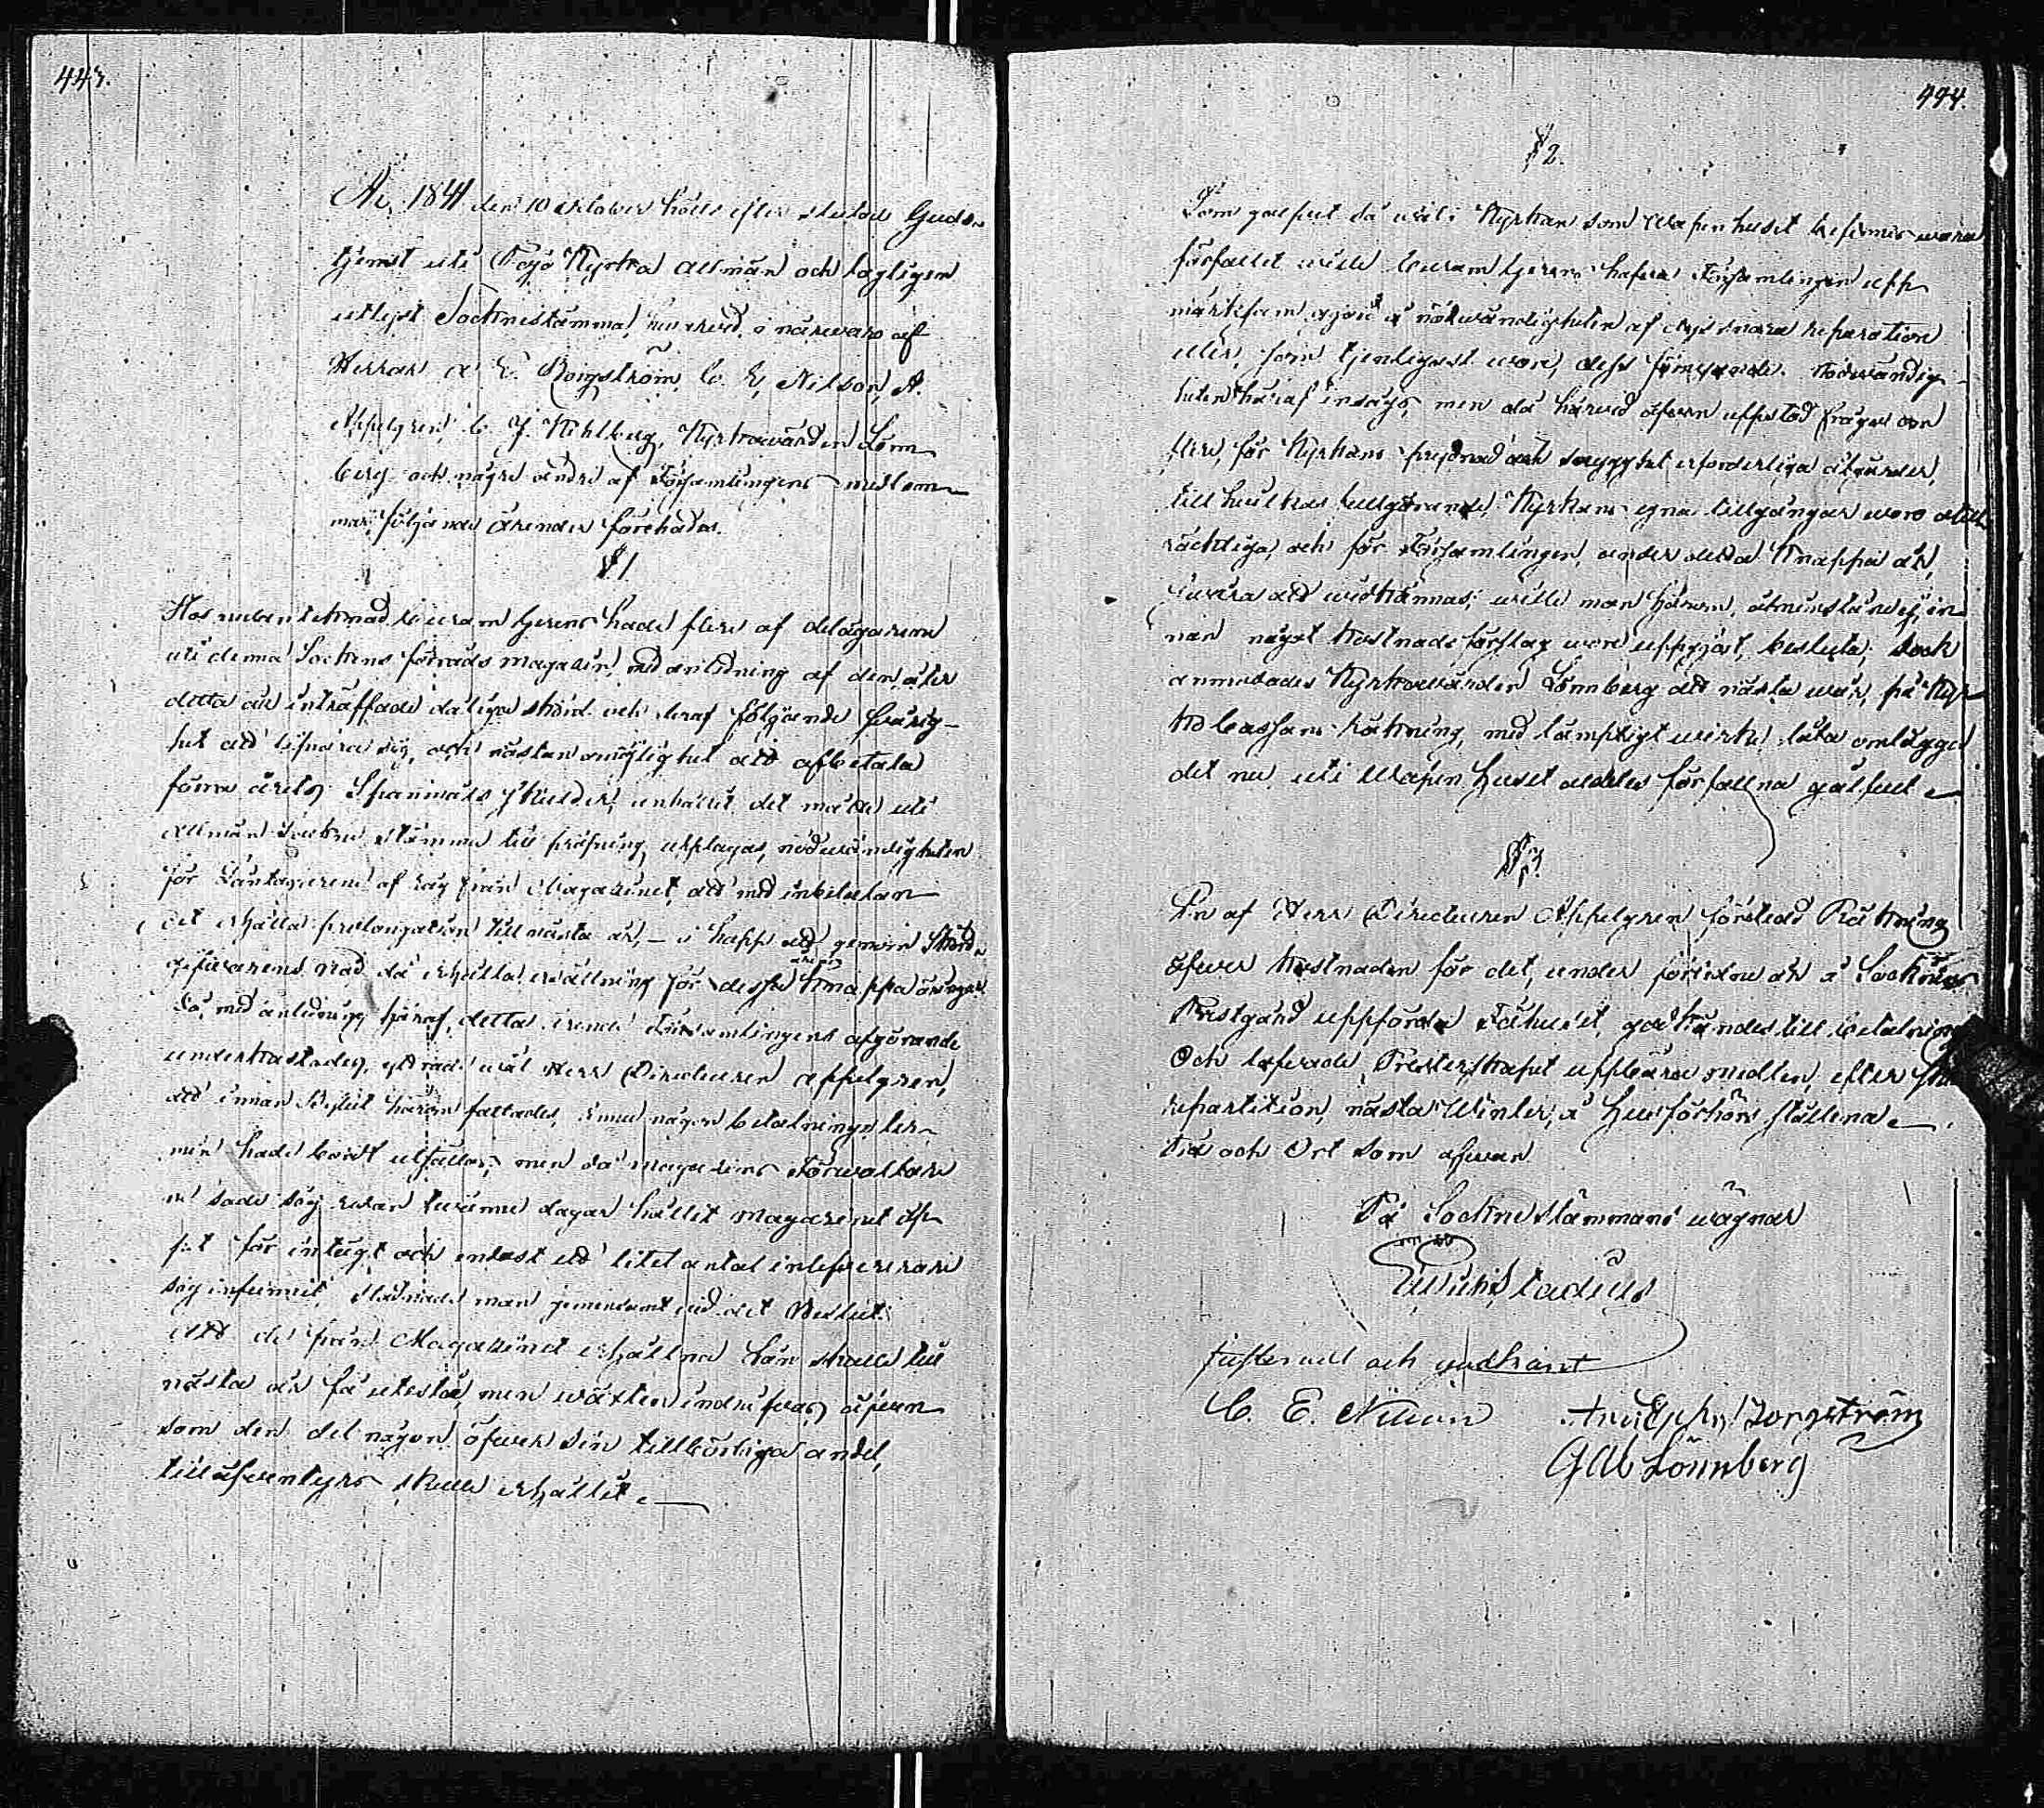 443.
År 1841 den 10 October hölls efter slutad Guds-
tjenst uti Pojo Kyrka allmän och lagligen
utlyst Socknestämma, hvarvid i närwaro af
Herrar A. E. Borgström, C. E. Nilson, A.
Appelgren, C. J. Kihlberg, Kyrkowärden Lönn-
berg och några andra af Församlingens medlem-
mar följande ärender förehades.
§ 1
Hos undertecknad hade flere af delägarene
uti denna Sockens förråds magasin, med anledning af den, äfwen
detta år inträffade dåliga skörd och deraf följande swårig-
het att lifnära sig, och nästan omöjlighet att afbetala
förra årets Spanmåls skulder, anhållit det måtte uti
allmän Sockne stämma till pröfning upptagas, nödwändigheten
för Låntagarene af råg från Magasinet, att med inbetalan-
det erhålla prolongation till nästa år, – i hopp att genom Skörd-
gifwarens nåd då erhålla ersättning för desse knappa
Då, med anledning häraf, detta ärende Församlingens afgörande
underkastades, yttrade wäl Herr Directeuren Appelgren,
att innan Beslut härom fattades, ännu någon betalnings ter-
min hade bordt utsättas; men då magasins Förwaltare
ne sade sig redan twänne dagar hållit Magasinet öp-
pet för intägt och endast ett litet antal inlefwererare
sig infunnit, stadnade man gemensamt wid det Beslut:
Att de från Magasinet erhållne Lån skulle till
nästa år få utestå, men wäxten indrifwas, äfwen
som den del någon öfwer sin tillbörliga andel,
till äfwentyrs skulle erhållit.
444.
§ 2.
Som golfwet så wäl i Kyrkan som Wapenhuset befinnes wara
förfallet wille hafwa Församlingen upp-
märksam gjord å nödwändigheten af dess snara reparation
eller, som tjenligast wore, dess förnyande. Nödwändig-
heten häraf insågs, men då härwid äfwen uppstod frågan om
flere, för Kyrkans prydnad och snygghet erforderliga åtgärder,
till hwilkas fullgörande, Kyrkans egna tillgångar woro otill-
räcklige, och för Församlingen, under detta knappa år,
swåra att widkännas; wille man härom, åtminstone ej, in-
nan något kostnads förslag wore uppgjort, besluta; dock
anmodades Kyrkowärden Lönnberg att nästa wår, på Kyr-
ko Cassans räkning, med lämpligt wirke låta omlägga
det nu uti Wapen huset alldeles förfallna golfwet.
§ 3.
En af Herr Directeuren Appelgren företedd Räkning
öfwer kostnaden för det, under förledne år å Socknens
Prestgård uppförda Fähuset, godkändes till betalning
Och lofwade Presterskapet uppbära medlen efter
repartition, nästa Winter, å husförhörs ställena.
Tid och Ort som ofwan
På Sockne stämmans wägnar
Stadius
Justerad och godkänt
C. E. Nilson Borgström
Lönnberg